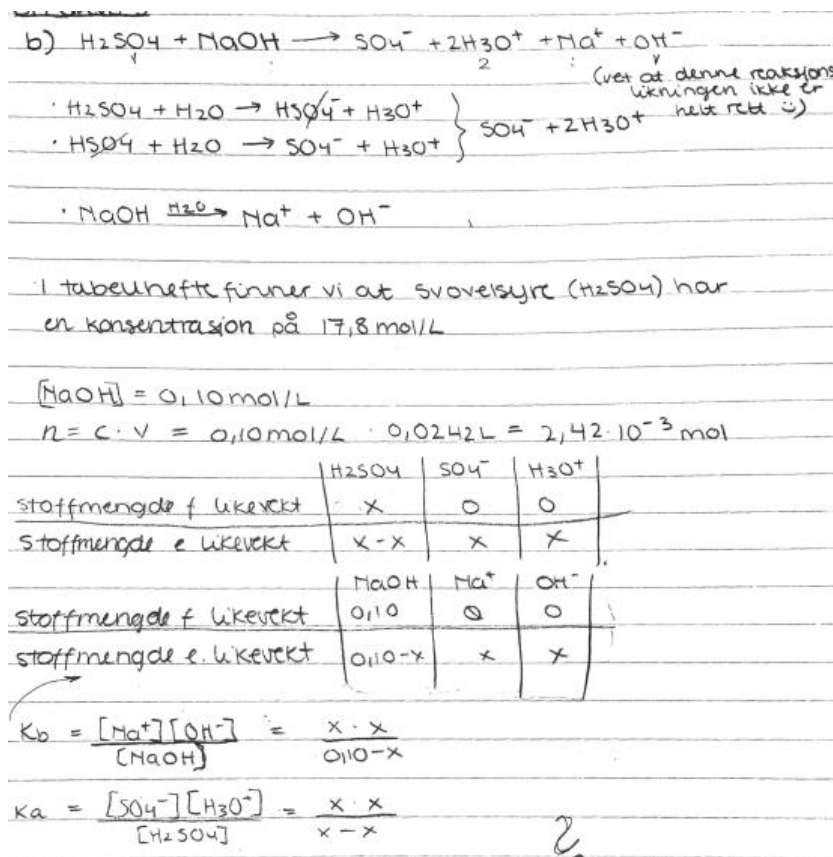 b) H2SO4 + NaOH → SO4⁻ + 2H3O⁺ + Na⁺ + OH⁻
2
(vet at denne reaksjons
likningen ikke er
helt rett :)
· H2SO4 + H2O → HSO4⁻ + H3O⁺
· HSO4 + H2O → SO4⁻ + H3O⁺
} SO4⁻ + 2H3O⁺
· NaOH H2O→ Na⁺ + OH⁻
I tabellhefte finner vi at svovelsyre (H2SO4) har
en konsentrasjon på 17,8 mol/L
[NaOH] = 0,10 mol/L
n = c · V = 0,10 mol/L · 0,0242L = 2,42 · 10⁻³ mol
H2SO4 | SO4⁻ | H3O⁺
stoffmengde f likevekt | x | 0 | 0
stoffmengde e likevekt | x-x | x | x
NaOH | Na⁺ | OH⁻
stoffmengde f likevekt | 0,10 | 0 | 0
stoffmengde e. likevekt | 0,10-x | x | x
Kb = [Na⁺][OH⁻] / [NaOH] = x · x / 0,10-x
Ka = [SO4⁻][H3O⁺] / [H2SO4] = x · x / x-x
2